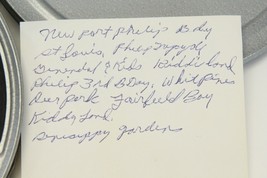 New Port Philip Baby
St Louis, Philip
Grendal & Kids Kiddieland
Philip 3rd BDay, White Pines
Deer Park Fairfield Bay
Kiddy Land
gardens